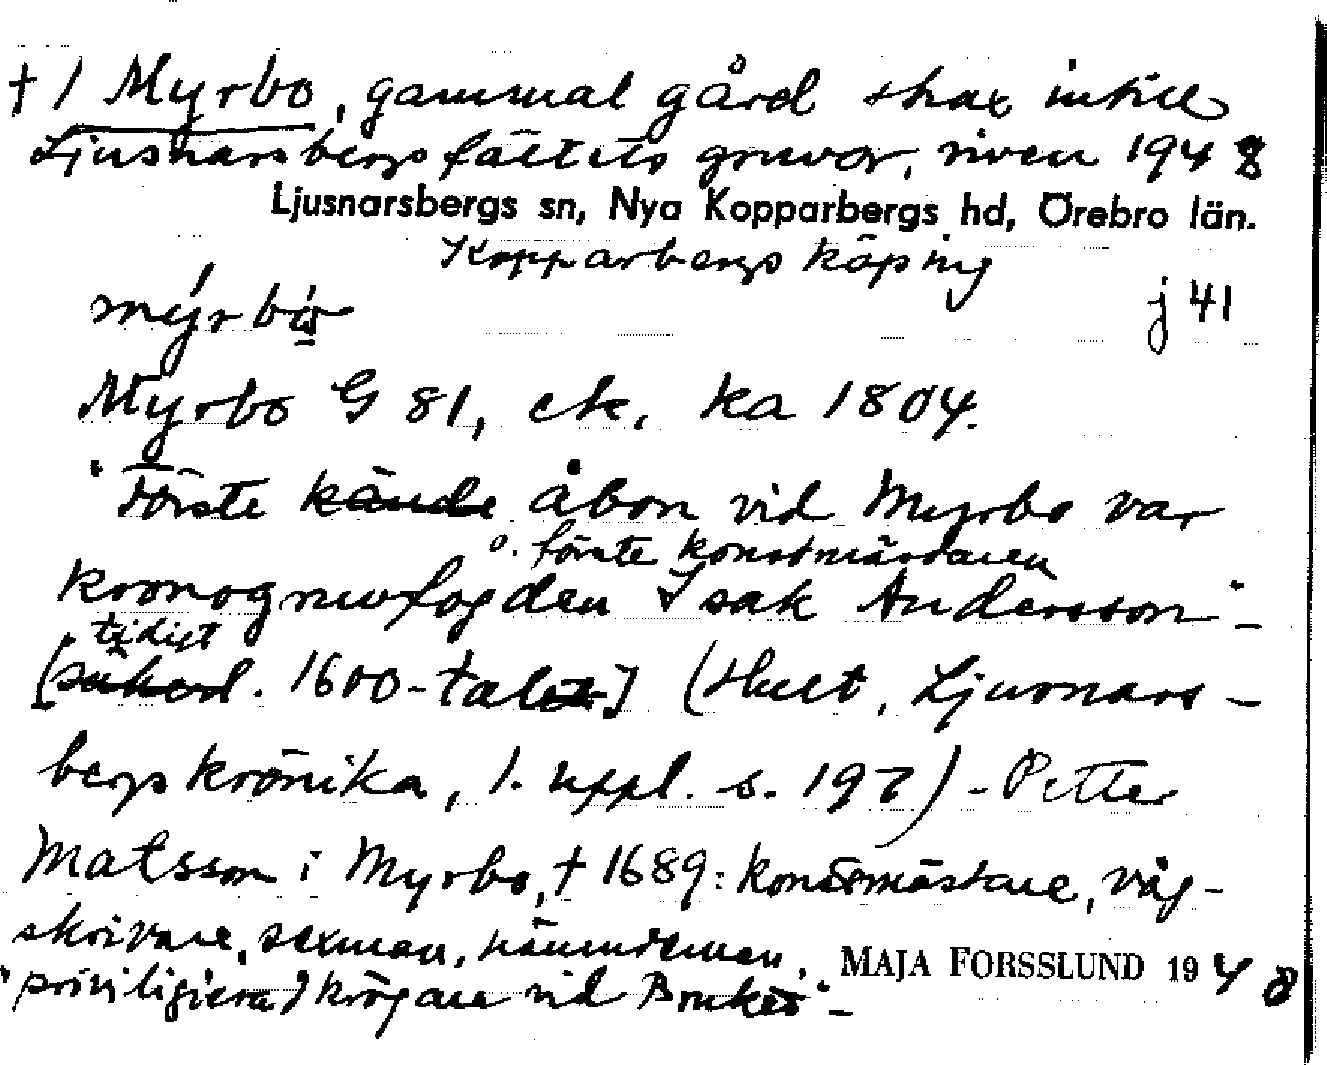 † / Myrbo, gammal gård strax intill
Ljusnarsbergsfältets gruvor, riven 1948
Ljusnarsbergs sn, Nya Kopparbergs hd, Örebro län.
Kopparbergs köping
mýrbò̱
j 41
Myrbo G 81, ek. ka 1804.
"Förste kände åbon vid Myrbo var
o. förste konstmästaren
kronogruvfogden Isak Andersson" –
tidigt
[säkerl. 1600-talet] (Hult, Ljusnars-
bergskrönika, 1. uppl. s. 197) – Petter
Matsson i Myrbo, † 1689: konstmästare, våg-
skrivare, sexman, nämndeman,
"priviligierad krögare vid Bruket" –
MAJA FORSSLUND 1948